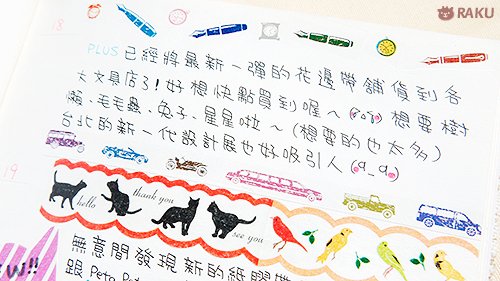 RAKU
18
PLUS 已經將最新一彈的花邊帶舖貨到各
大文具店了!好想快點買到喔～ 想要樹
懶、毛毛蟲、兔子、星星啦～(想要的也太多)
台北的新一代設計展也好吸引人
19
hello
thank you
see you
無意間發現新的紙膠帶
EW!!
跟 Peta